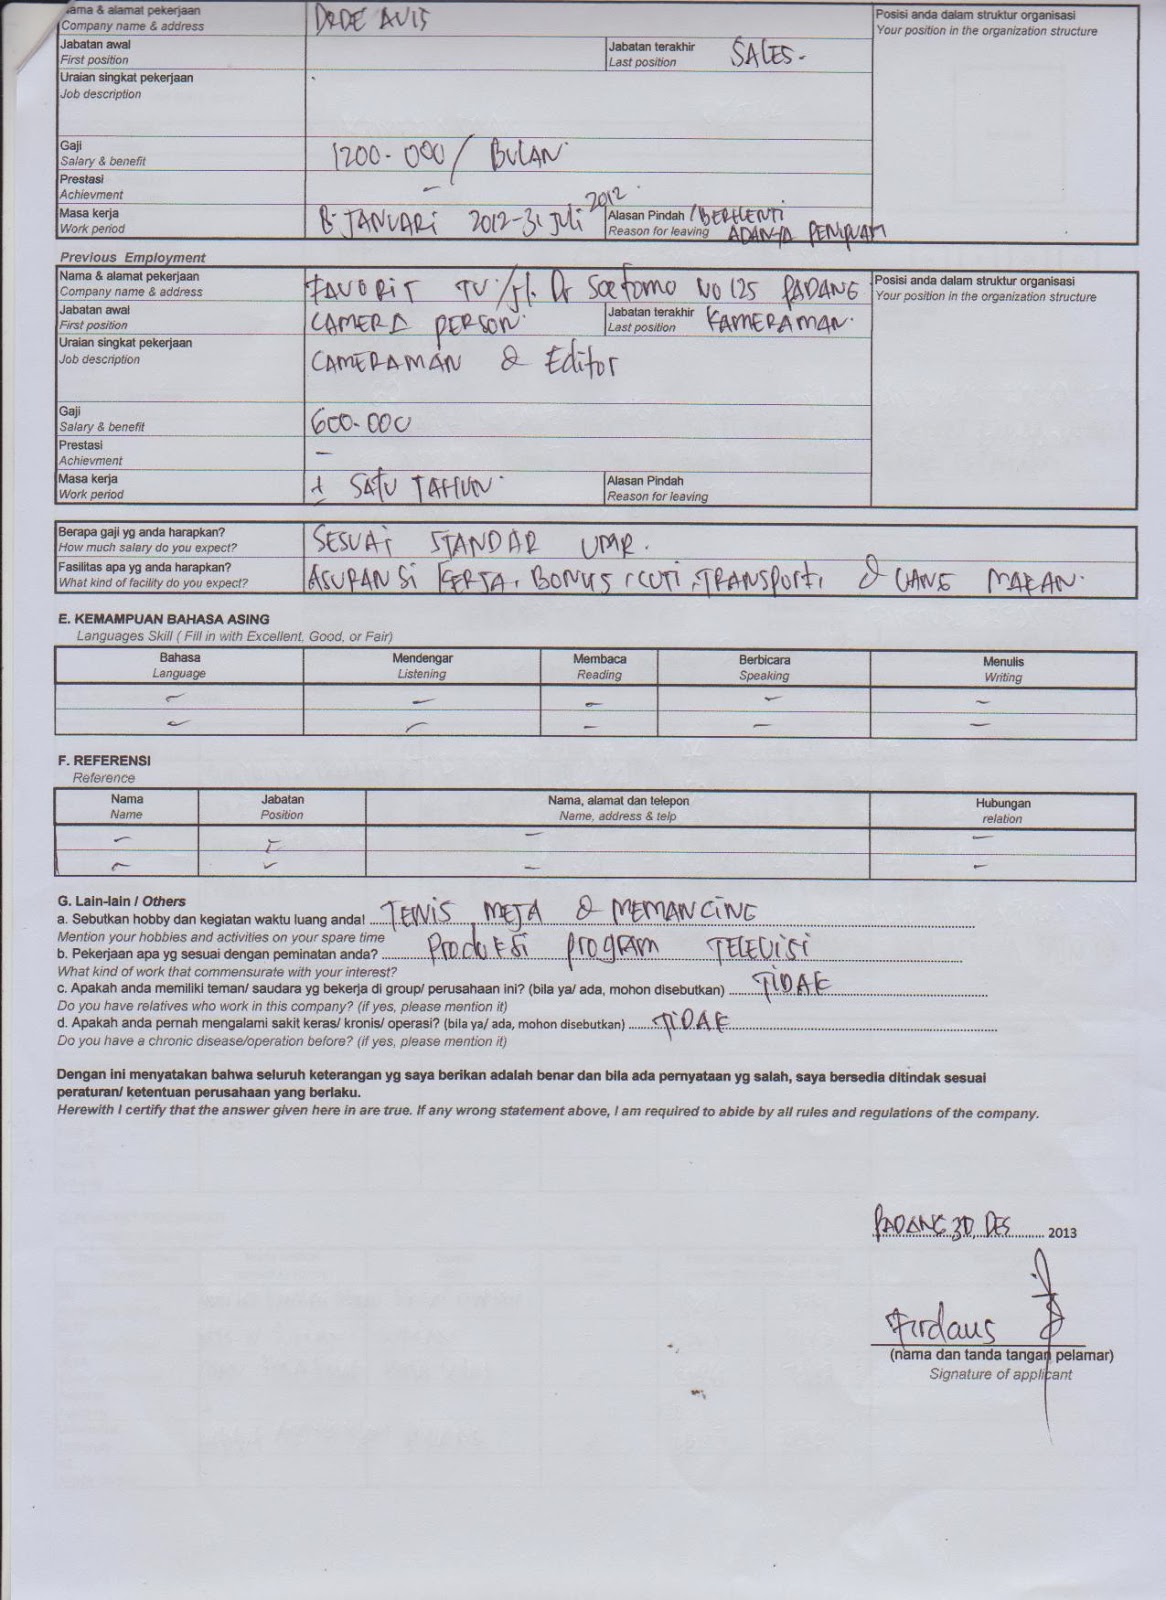 ama & alamat pekerjaan
Company name & address
AVIS
Posisi anda dalam struktur organisasi
Your position in the organization structure
Jabatan awal
First position
Jabatan terakhir
Last position
SALES-
Uraian singkat pekerjaan
Job description
Gaji
Salary & benefit
1200.000 / BULAN
Prestasi
Achievment
-
Masa kerja
Work period
JANUARI 2012-31 JULI 2012
Alasan Pindah /BERHENTI
Reason for leaving ADANYA PENIPUAN
Previous Employment
Nama & alamat pekerjaan
Company name & address
FAVORIT TV/jl. Dr Soetomo NO 125 PADANG
Posisi anda dalam struktur organisasi
Your position in the organization structure
Jabatan awal
First position
CAMERA PERSON
Jabatan terakhir
Last position
KAMERAMAN
Uraian singkat pekerjaan
Job description
CAMERAMAN & Editor
Gaji
Salary & benefit
600.000
Prestasi
Achievment
-
Masa kerja
Work period
± SATU TAHUN
Alasan Pindah
Reason for leaving
Berapa gaji yg anda harapkan?
How much salary do you expect?
SESUAI STANDAR UMR.
Fasilitas apa yg anda harapkan?
What kind of facility do you expect?
ASURANSI KERJA, BONUS, CUTI, TRANSPORT, & UANG MAKAN.
E. KEMAMPUAN BAHASA ASING
Languages Skill ( Fill in with Excellent, Good, or Fair)
Bahasa Mendengar Membaca Berbicara Menulis
Language Listening Reading Speaking Writing
- - - - -
- - - - -
F. REFERENSI
Reference
Nama Jabatan Nama, alamat dan telepon Hubungan
Name Position Name, address & telp relation
- - - -
- - - -
G. Lain-lain / Others
a. Sebutkan hobby dan kegiatan waktu luang anda! TENIS MEJA & MEMANCING
Mention your hobbies and activities on your spare time
b. Pekerjaan apa yg sesuai dengan peminatan anda? PRODUKSI PROGRAM TELEVISI
What kind of work that commensurate with your interest?
c. Apakah anda memiliki teman/ saudara yg bekerja di group/ perusahaan ini? (bila ya/ ada, mohon disebutkan) TIDAK
Do you have relatives who work in this company? (if yes, please mention it)
d. Apakah anda pernah mengalami sakit keras/ kronis/ operasi? (bila ya/ ada, mohon disebutkan) TIDAK
Do you have a chronic disease/operation before? (if yes, please mention it)
Dengan ini menyatakan bahwa seluruh keterangan yg saya berikan adalah benar dan bila ada pernyataan yg salah, saya bersedia ditindak sesuai
peraturan/ ketentuan perusahaan yang berlaku.
Herewith I certify that the answer given here in are true. If any wrong statement above, I am required to abide by all rules and regulations of the company.
PADANG 30, DES 2013
Firdaus
(nama dan tanda tangan pelamar)
Signature of applicant